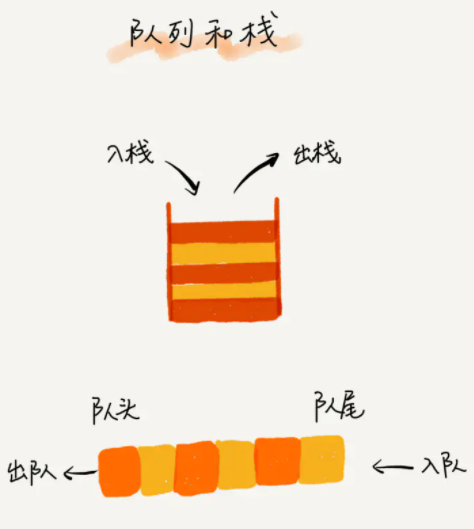 队列和栈
入栈
出栈
队头
队尾
出队
入队